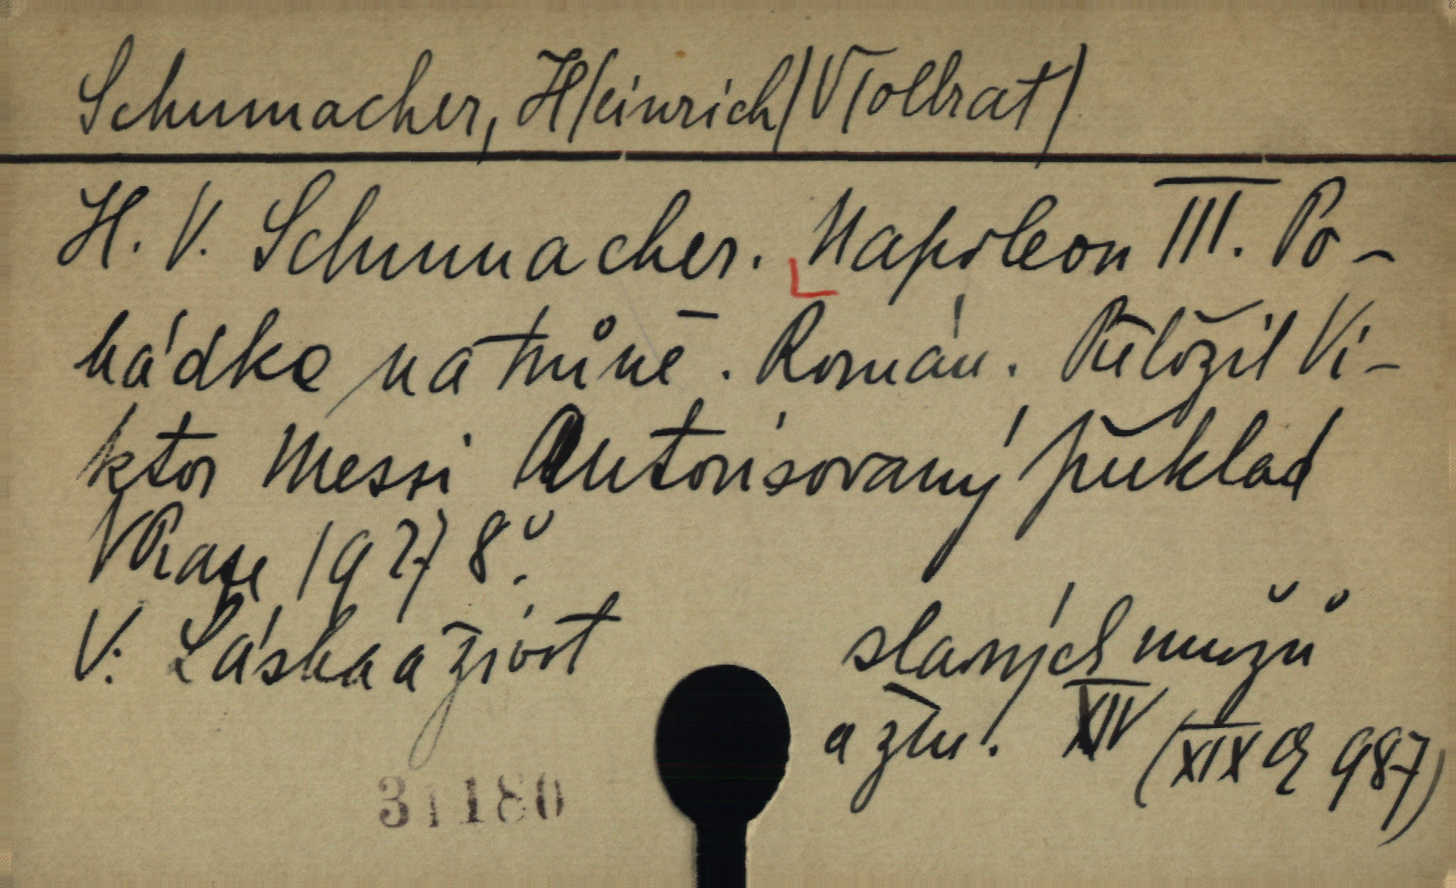 Schumacher, H/einrich/ V/ollrat/
H. V. Schumacher. Napoleon III. Po-
hádka na trůně. Román. Přeložil Vi-
ktor Messi Autorisovaný překlad
V Praze 1927 8°.
V: Láska a život slavných mužů
a žen. XIV (XIX d 987)
31180